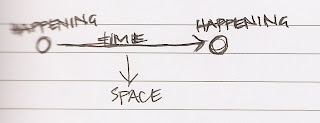 HAPPENING HAPPENING
TIME
SPACE